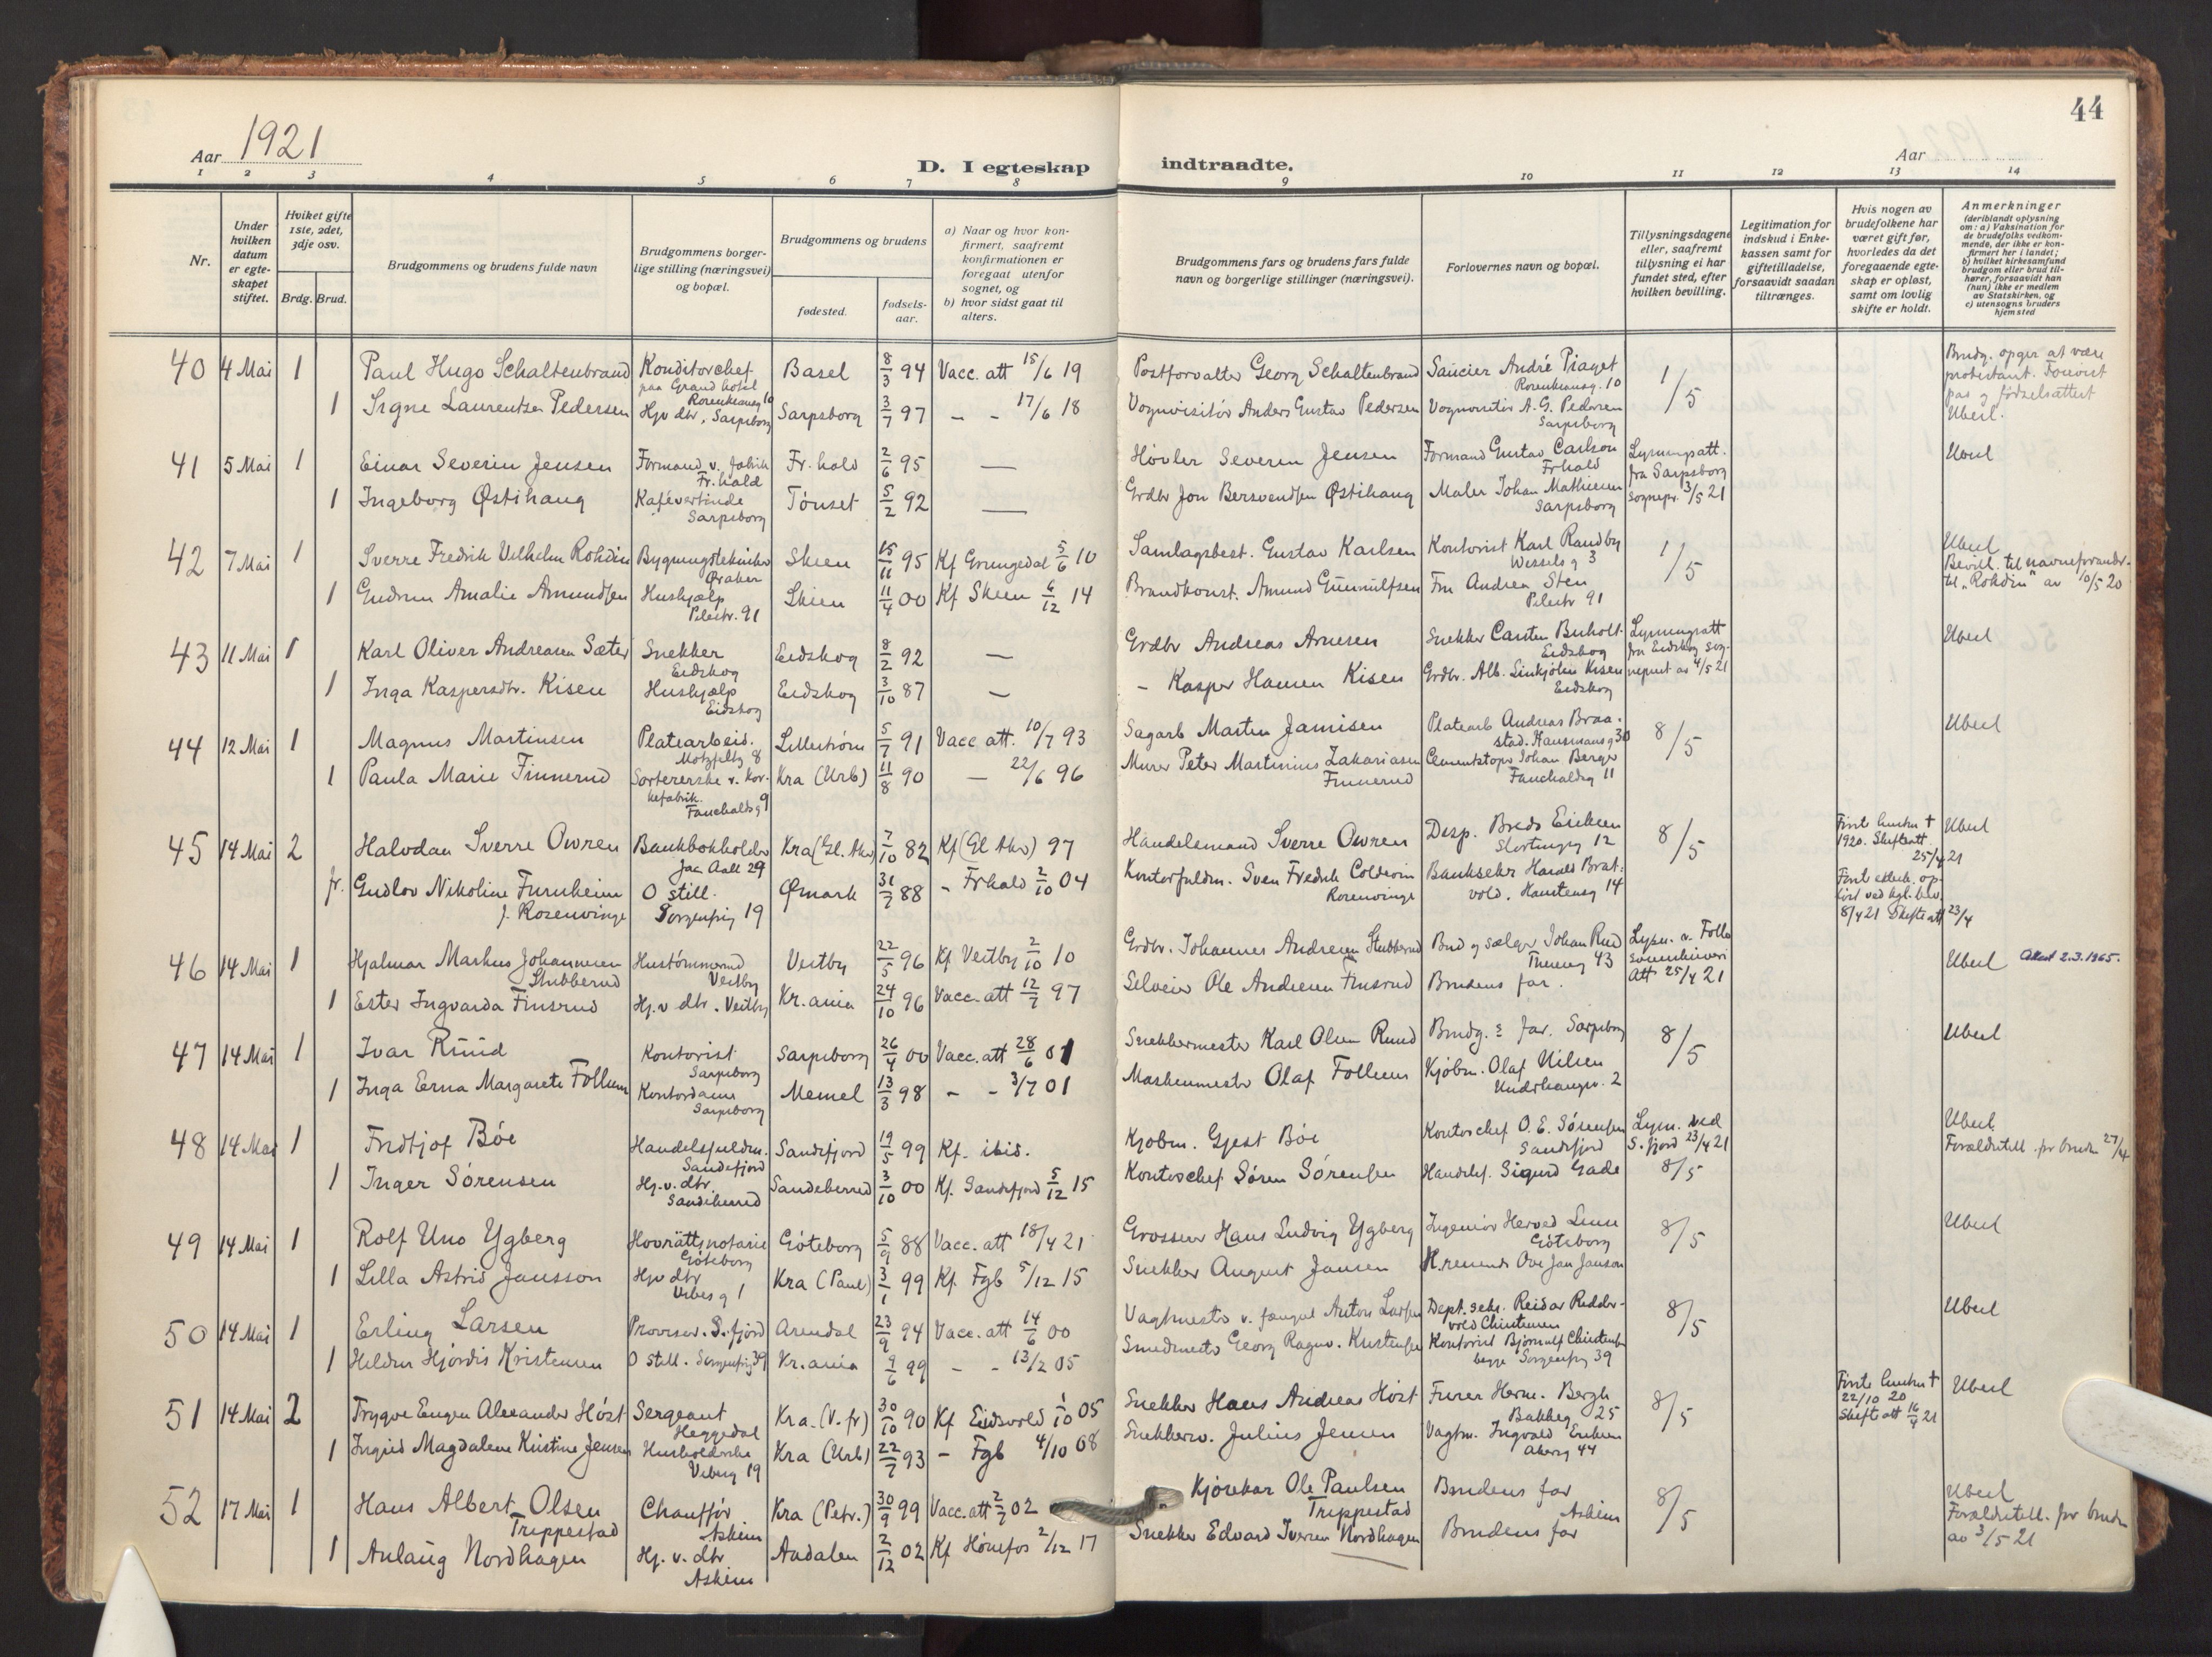 44
Aar 1921
D. I egteskap indtraadte.
Aar
1 2 3 4 5 6 7 8 9 10 11 12 13 14
Nr.
Under hvilken datum er egteskapet stiftet.
Hvilket gifte 1ste, 2det, 3dje osv.
Brdg. Brud.
Brudgommens og brudens fulde navn
Brudgommens borgerlige stilling (næringsvei) og bopæl.
Brudgommens og brudens
fødested.
fødselsaar.
a) Naar og hvor konfirmert, saafremt konfirmationen er foregaat utenfor sognet, og
b) hvor sidst gaat til alters.
Brudgommens fars og brudens fars fulde navn og borgerlige stillinger (næringsvei).
Forlovernes navn og bopæl.
Tillysningsdagene eller, saafremt tillysning ei har fundet sted, efter hvilken bevilling.
Legitimation for indskud i Enkekassen samt for giftetilladelse, forsaavidt saadan tiltrænges.
Hvis nogen av brudefolkene har været gift før, hvorledes da det foregaaende egteskap er opløst, samt om lovlig skifte er holdt.
Anmerkninger (deriblandt oplysning om: a) Vaksination for de brudefolks vedkommende, der ikke er konfirmert her i landet; b) hvilket kirkesamfund brudgom eller brud tilhører, forsaavidt han (hun) ikke er medlem av Statskirken, og c) utensogns bruders hjemsted
40 4 Mai 1 Paul Hugo Schaltenbrand Konditorchef paa Grand hotel Rosenkransg 10 Basel 8/3 94 Vacc. att 15/6 19 Postforvalter Georg Schaltenbrand Saucier André Piaget Rosenkransg. 10 1/5 Brudg. opgir at være protestant. Forevist pas og fødselsattest Uberl.
1 Signe Laurentze Pedersen Hjv dtr, Sarpsborg Sarpsborg 3/7 97 - - 17/6 18 Vognvisitør Anders Gustav Pedersen Vognvisitør A. G. Pedersen Sarpsborg
41 5 Mai 1 Einar Severin Jensen Formand v. fabrik Fr.hald Fr. hald 2/6 95 — Høvler Severin Jensen Formand Gustav Carlson Frhald Lysningsatt. fra Sarpsborg sognepr. 3/5 21 Uberl
1 Ingeborg Østihaug Kafévertinde Sarpsborg Tönset 5/2 92 — Grdbr Jon Bersvendsen Østihaug Maler Johan Mathiesen Sarpsborg
42 7 Mai 1 Sverre Fredrik Vilhelm Rohdin Bygningstekniker Skien 15/11 95 Kf Grungedal 5/6 10 Samlagsbest. Gustav Karlsen Kontorist Karl Randby Wessels g 3 1/5 Uberl Bevill. til navneforandr. til "Rohdin" av 10/5 20
1 Gudrun Amalie Amundsen Hushjælp Pilestr. 91 Skien 11/4 00 Kf Skien 6/12 14 Brandkonst. Amund Gunnulfsen Fru Andrea Sten Pilestr 91
43 11 Mai 1 Karl Oliver Andreasen Sæter Snekker Eidskog Eidskog 8/2 92 — Grdbr Andreas Arnesen Snekker Carsten Buholt Eidskog Lysningsatt fra Eidskog sogneprest av 4/5 21 Uberl
1 Inga Kaspersdtr. Kisen Hushjælp Eidskog Eidskog 3/10 87 — - Kasper Hansen Kisen Grdbr. Alb. Linkjölen Kisen Eidskog
44 12 Mai 1 Magnus Martinsen Platearbeid. Motzfeldtsg 8 Lillestrøm 5/7 91 Vacc att. 10/7 93 Sagarb Martin Jamisen Platearb Andreas Braastad. Hausmansg 30 8/5 Uberl
1 Paula Marie Finnerud Sortererske v. korkefabrik. Fauchaldsg 9 Kra (Urb) 11/8 90 — 22/6 96 Murer Peter Martinius Zakariasen Finnerud Cementstøper Johan Berger Fauchaldsg 11
45 14 Mai 2 Halvdan Sverre Owren Bankbokholder Jac Aall 29 Kra (Gl. Akr) 7/10 82 Kf (Gl Akr) 97 Handelsmand Sverre Owren Disp. Bredo Eriksen Stortingsg 12 8/5 Første hustru † 1920. Skifteatt. 25/4 21 Uberl
fr. Gudlov Nikoline Furuheim f. Rosenvinge O still. Sorgenfrig 19 Ømark 31/7 88 - Frhald 2/10 04 Kontorfuldm. Sven Fredrik Coldevin Rosenvinge Banksekr Harald Bratvold. Hansteensg 14 Første ektesk. opløst ved kgl. bev. 8/4 21 Skifteatt 23/4
46 14 Mai 1 Hjalmar Markus Johannesen Stubberud Hustømmermd Vestby Vestby 22/5 96 Kf Vestby 2/10 10 Grdbr. Johannes Andresen Stubberud Bud og sælger Johan Ruud Thereses g 43 Lysn. v. Follo sorenskriveri Att 25/4 21 Uberl Attest 2.3.1965.
1 Ester Ingvarda Finsrud Hj.v dtr. Vestby Kr.ania 24/10 96 Vacc. att 12/7 97 Selveier Ole Andresen Finsrud Brudens far.
47 14 Mai 1 Ivar Ruud Kontorist Sarpsborg Sarpsborg 26/4 00 Vacc. att 28/6 01 Snekkermester Karl Olsen Ruud Brudg.s far. Sarpsborg 8/5 Uberl
1 Inga Erna Margarete Follum Kontordame Sarpsborg Memel 13/3 98 - - 3/7 01 Maskinmester Olaf Follum Kjøbm. Olaf Nilsen Underhaugsv. 2
48 14 Mai 1 Fridtjof Bøe Handelsfuldm. Sandefjord Sandefjord 19/5 99 Kf. ibid. Kjøbm. Gjest Bøe Kontorchef O. E. Sørensen Sandefjord Lysn. ved S. fjord 23/4 21 Uberl. Forældretill. for bruden 27/4
1 Inger Sørensen Hj.v. dtr. Sandeherred Sandeherred 3/10 00 Kf. Sandefjord 5/12 15 Kontorchef Søren Sørensen Handelsf. Sigurd Gade 8/5
49 14 Mai 1 Rolf Uno Ygberg Hovrättsnotarie Göteborg Göteborg 5/9 88 Vacc. att 18/4 21 Grosserer Hans Ludvig Ygberg Ingeniør Herved Göteborg 8/5 Uberl
1 Lilla Astrid Jansson Hjv dtr Vibes g 1 Kra (Paul) 3/1 99 Kf. Fgb 5/12 15 Snekker August Jansen H.r. Ove Jan Janson
50 14 Mai 1 Erling Larsen Provisor. S.fjord Arendal 23/9 94 Vacc. att 14/6 00 Vagtmester v. fængsel Anton Larsen Dept. sekr. Reidar Reddervold Christensen 8/5 Uberl
1 Hildur Hjördis Kristensen O still. Sorgenfrig 39 Kr.ania 9/6 99 - - 13/2 05 Smedmester Georg Ragnv. Kristensen Kontorist Bjørnulf Christensen begge Sorgenfrig 39
51 14 Mai 2 Trygve Eugen Alexander Høst Sergeant Heggedal Kra. (V. fr) 30/10 90 Kf Eidsvold 1/10 05 Snekker Hans Andreas Høst Furer Herm. Bergh Bakkeg 25 8/5 Første hustru † 22/10 20 Skifteatt 16/4 21 Uberl
1 Ingrid Magdalene Kristine Jensen Husholderske Vibesg 19 Kra (Urb) 22/7 93 - Fgb 4/10 08 Snekkersv. Julius Jensen Vagtm. Ingvald Eriksen Akersg 44
52 17 Mai 1 Hans Albert Olsen Trippestad Chauffør Askim Kra (Petr.) 30/9 99 Vacc. att 2/7 02 Kjørekar Ole Paulsen Trippestad Brudens far Askim 8/5 Uberl Forældretill. for bruden av 3/5 21
1 Aslaug Nordhagen Hj. v. dtr Askim Aadalen 2/12 02 Kf Hønefos 2/12 17 Snekker Edvard Iversen Nordhagen Brudens far